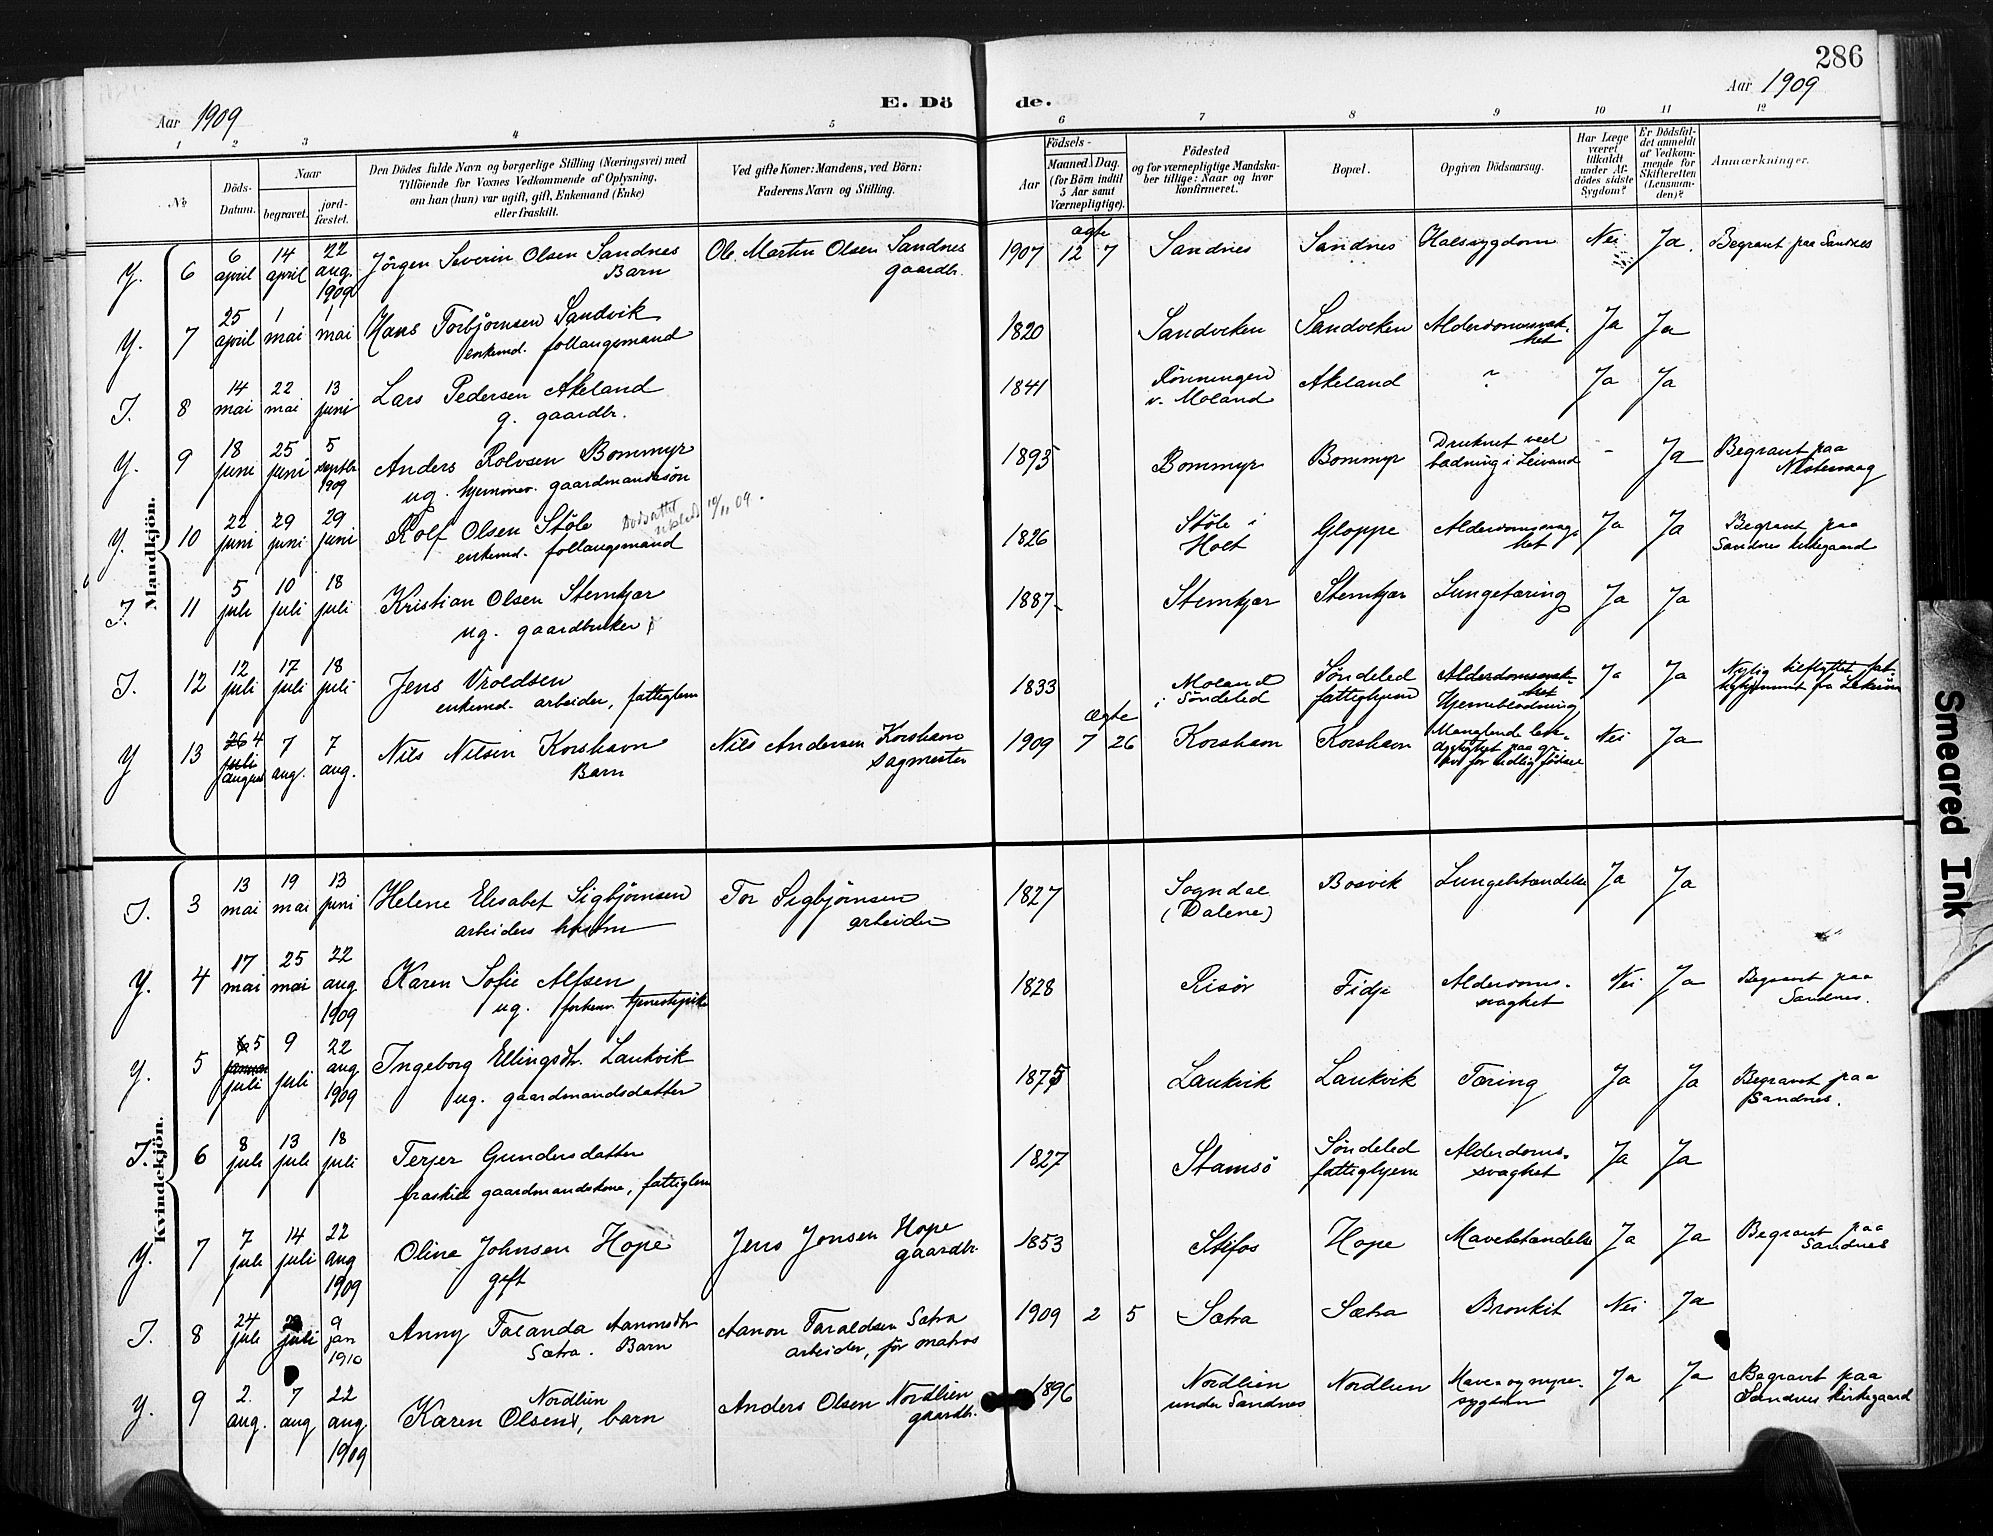 286
Aar 1909
E. Dö de.
Aar 1909
1 2 3 4 5 6 7 8 9 10 11 12
No
Döds-Datum.
Naar
begravet.
jord-fæstet.
Den Dödes fulde Navn og borgerlige Stilling (Næringsvei) med
Tilföiende for Voxnes Vedkommende af Oplysning,
om han (hun) var ugift, gift, Enkemand (Enke)
eller fraskilt.
Ved gifte Koner: Mandens, ved Börn:
Faderens Navn og Stilling.
Födsels-
Aar
Maaned. Dag.
(for Börn indtil
5 Aar samt
Værnepligtige).
Födested
og for værnepligtige Mandska-
ber tillige: Naar og hvor
konfirmeret.
Bopæl.
Opgiven Dödsaarsag.
Har Læge
været
tilkaldt
under Af-
dödes sidste
Sygdom?
Er Dödsfal-
det anmeldt
af Vedkom-
mende for
Skifteretten
(Lensman-
den)?
Anmærkninger.
Mandkjön.
Y. 6 6 april 14 april 22 aug. 1909 Jörgen Severin Olsen Sandnes Barn Ole Martin Olsen Sandnes gaardbr. 1907 ægte 12 7 Sandnes Sandnes Halssygdom Nei Ja. Begravet paa Sandnes
Y. 7 25 april 1 mai 1 mai Hans Torbjørnsen Sandvik enkemd. follaugsmand 1820 Sandviken Sandviken Alderdomssvak-het Ja Ja
I. 8 14 mai 22 mai 13 juni Lars Pedersen Akeland g. gaardbr. 1841 Rönningen v. Moland Akeland ? Ja Ja
Y. 9 18 juni 25 juni 5 septbr 1909 Anders Rolvsen Bommyr ug. hjemmev. gaardmandssön 1893 Bommyr Bommyr Druknet ved badning i Leivand - Ja Begravet paa
Y. 10 22 juni 29 juni 29 juni Rolf Olsen Støle enkemd. follaugsmand 10/11 09. 1826 Støle i Holt Gloppe Alderdomssvag-het Ja Ja Begravet paa Sandnes kirkegaard
I. 11 5 juli 10 juli 18 juli Kristian Olsen Stemkjær ug. gaardbruker 1887 Stemkjær Stemkjær Lungetæring Ja Ja
I. 12 12 juli 17 juli 18 juli Jens Vroldsen enkemd. arbeider, fattiglem 1833 Moland i Søndeled Søndeled fattighjem Alderdomssvak-het Hjerneblødning Ja Ja Nylig tilflyttet fra
Y 13 26 4 juli august 7 aug. 7 aug. Nils Nilsen Korshavn Barn Nils Andersen Korshavn sagmester 1909 ægte 7 26 Korshavn Korshavn Manglende for tidlig fødsel Nei Ja
Kvindekjön.
I. 3 13 mai 19 mai 13 juni Helene Elisabet Sigbjørnsen arbeiders hustru Tor Sigbjørnsen arbeider 1827 Sogndal (Dalene) Bosvik Lungebetændelse Ja Ja
Y. 4 17 mai 25 mai 22 aug 1909 Karen Sofie Alfsen ug. forhenv. tjenestepike 1828 Risør Fidje Alderdoms-svaghet Nei Ja Begravet paa Sandnes.
Y. 5 5 januar juli 9 juli 22 aug 1909 Ingeborg Ellingsdtr. Laukvik ug. gaardmandsdatter 1875 Laukvik Laukvik Tæring Ja Ja Begravet paa Sandnes.
I. 6 8 juli 13 juli 18 juli Terjer Gundersdatter fraskilt gaardmandskone, fattiglem 1827 Stamsö Søndeled fattighjem Alderdoms-svaghet Ja Ja
Y. 7 7 juli 14 juli 22 aug 1909 Oline Johnsen Hope gift Jens Jonsen Hope gaardbr. 1853 Stifos Hope Mavebetændelse Ja Ja Begravet paa Sandnes
I. 8 24 juli juli 9 jan 1910 Anny Jolanda Aanonsdtr Sætra. Barn Aanon Taraldsen Sætra arbeider, før matros 1909 2 5 Sætra Sætra Bronkit Nei Ja
Y. 9 2. aug. 7 aug 22 aug 1909 Karen Olsen Nordlien, barn Anders Olsen Nordlien gaardbr. 1896 Nordlien under Sandnes Nordlien Mave og nyre-sygdom Ja Ja Begravet paa Sandnes kirkegaard
Smeared Ink